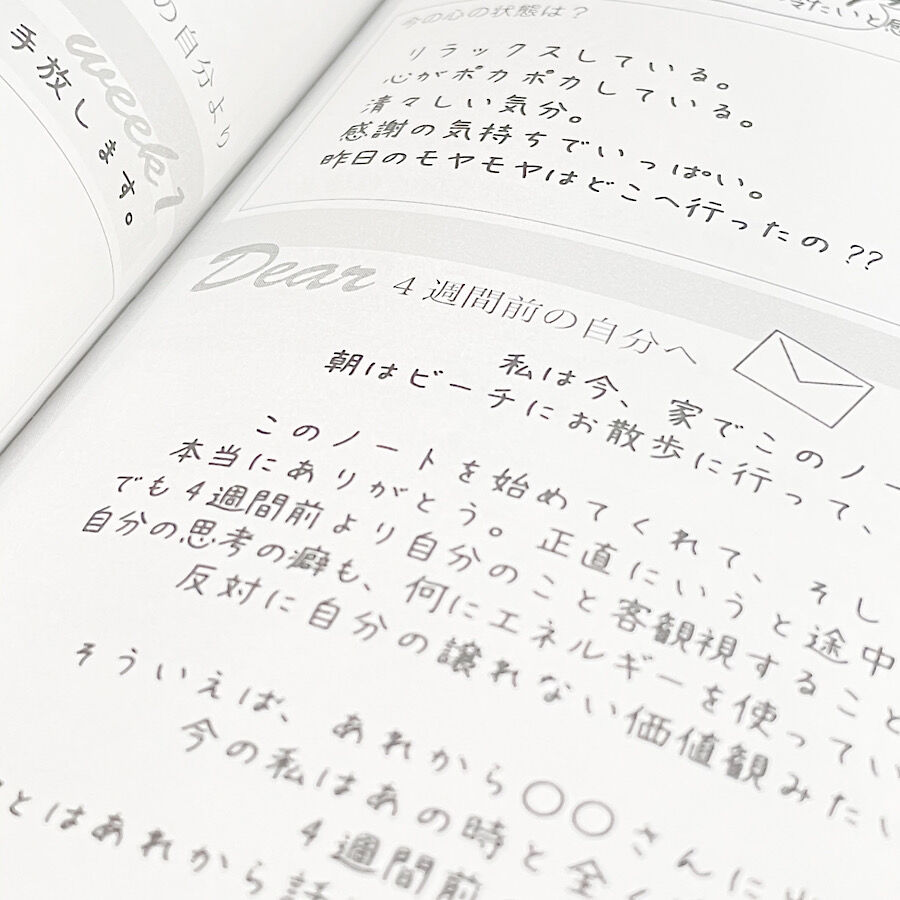 の自分より
week 1
手放します。
冷たいと感
今の心の状態は？
リラックスしている。
心がポカポカしている。
清々しい気分。
感謝の気持ちでいっぱい。
昨日のモヤモヤはどこへ行ったの??
Dear 4週間前の自分へ
私は今、家でこのノー
朝はビーチにお散歩に行って、
このノートを始めてくれて、そし
本当にありがとう。正直にいうと途中
でも4週間前より自分のこと客観視すること
自分の思考の癖も、何にエネルギーを使ってい
反対に自分の譲れない価値観みたい
そういえば、あれから〇〇さんに
今の私はあの時と全く
4週間前
とはあれから話